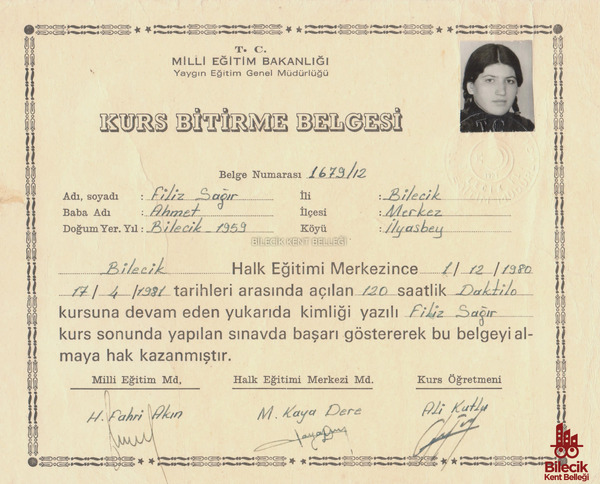 T. C.
MİLLİ EĞİTİM BAKANLIĞI
Yaygın Eğitim Genel Müdürlüğü
KURS BİTİRME BELGESİ
Belge Numarası 1679/12
Adı, soyadı : Filiz Sağır İli : Bilecik
Baba Adı : Ahmet İlçesi : Merkez
Doğum Yer. Yıl : Bilecik 1959 Köyü : İlyasbey
BİLECİK KENT BELLEĞİ
Bilecik Halk Eğitimi Merkezince 1/12/1980
17/4/1981 tarihleri arasında açılan 120 saatlik Daktilo
kursuna devam eden yukarıda kimliği yazılı Filiz Sağır
kurs sonunda yapılan sınavda başarı göstererek bu belgeyi al-
maya hak kazanmıştır.
Milli Eğitim Md, Halk Eğitimi Merkezi Md. Kurs Öğretmeni
H. Fahri Akın M. Kaya Dere Ali Kutlu
Bilecik
Kent Belleği